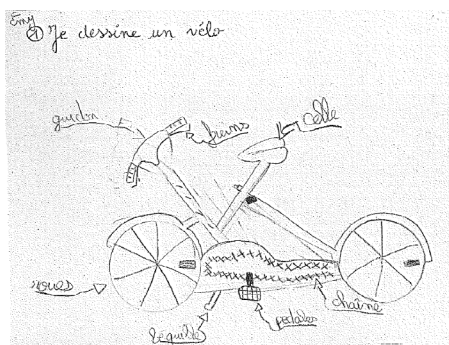 Emy
① Je dessine un vélo
guidon
freins
celle
roues
béquille
pedales
chaîne